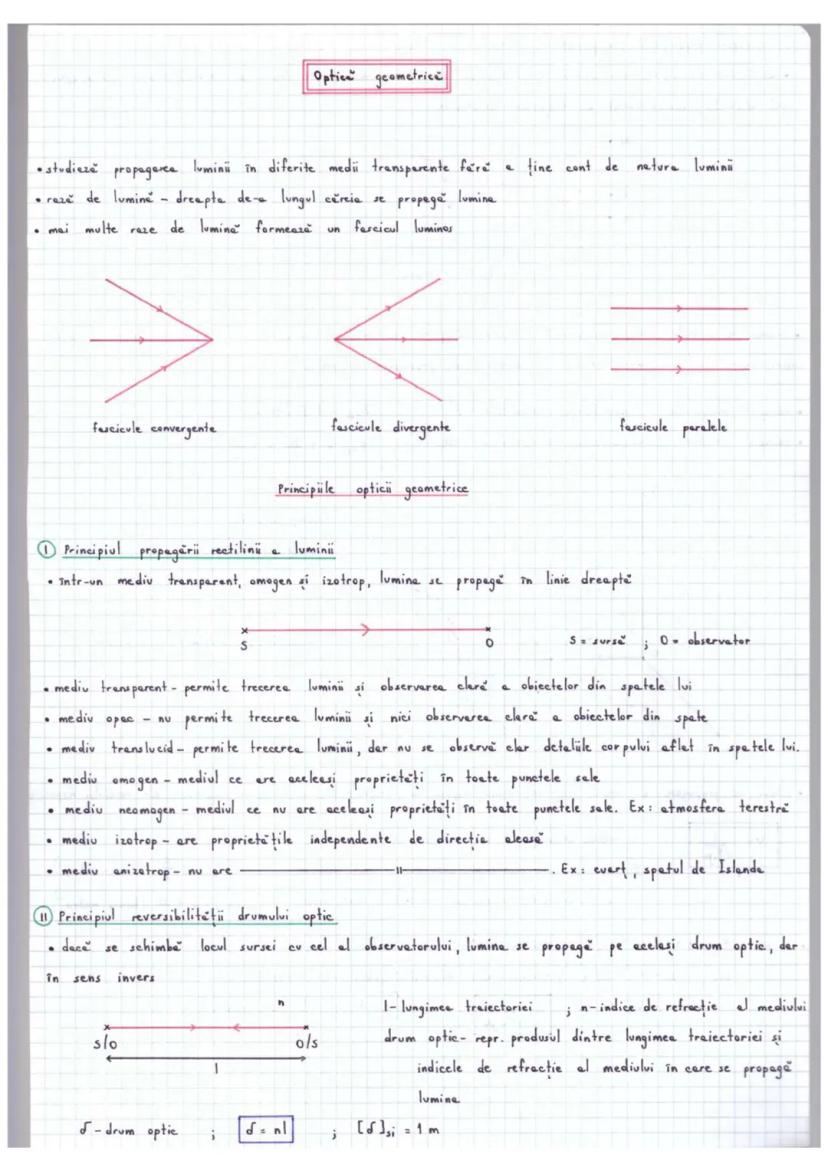 Optică geometrică
• studiază propagarea luminii în diferite medii transparente fără a ține cont de natura luminii
• rază de lumină - dreapta de-a lungul căreia se propagă lumina
• mai multe raze de lumină formează un fascicul luminos
fascicule convergente fascicule divergente fascicule paralele
Principiile opticii geometrice
I Principiul propagării rectilinii a luminii
• într-un mediu transparent, omogen și izotrop, lumina se propagă în linie dreaptă
S O S = sursă ; O = observator
• mediu transparent - permite trecerea luminii și observarea clară a obiectelor din spatele lui
• mediu opac - nu permite trecerea luminii și nici observarea clară a obiectelor din spate
• mediu translucid - permite trecerea luminii, dar nu se observă clar detaliile corpului aflat în spatele lui.
• mediu omogen - mediul ce are aceleași proprietăți în toate punctele sale
• mediu neomogen - mediul ce nu are aceleași proprietăți în toate punctele sale. Ex: atmosfera terestră
• mediu izotrop - are proprietățile independente de direcția aleasă
• mediu anizotrop - nu are —||— . Ex: cuarț, spatul de Islanda
II Principiul reversibilității drumului optic
• dacă se schimbă locul sursei cu cel al observatorului, lumina se propagă pe același drum optic, dar
în sens invers
n l - lungimea traiectoriei ; n - indice de refracție al mediului
S/O O/S drum optic - repr. produsul dintre lungimea traiectoriei și
l indicele de refracție al mediului în care se propagă
lumina
δ - drum optic ; δ = nl ; [δ]si = 1 m